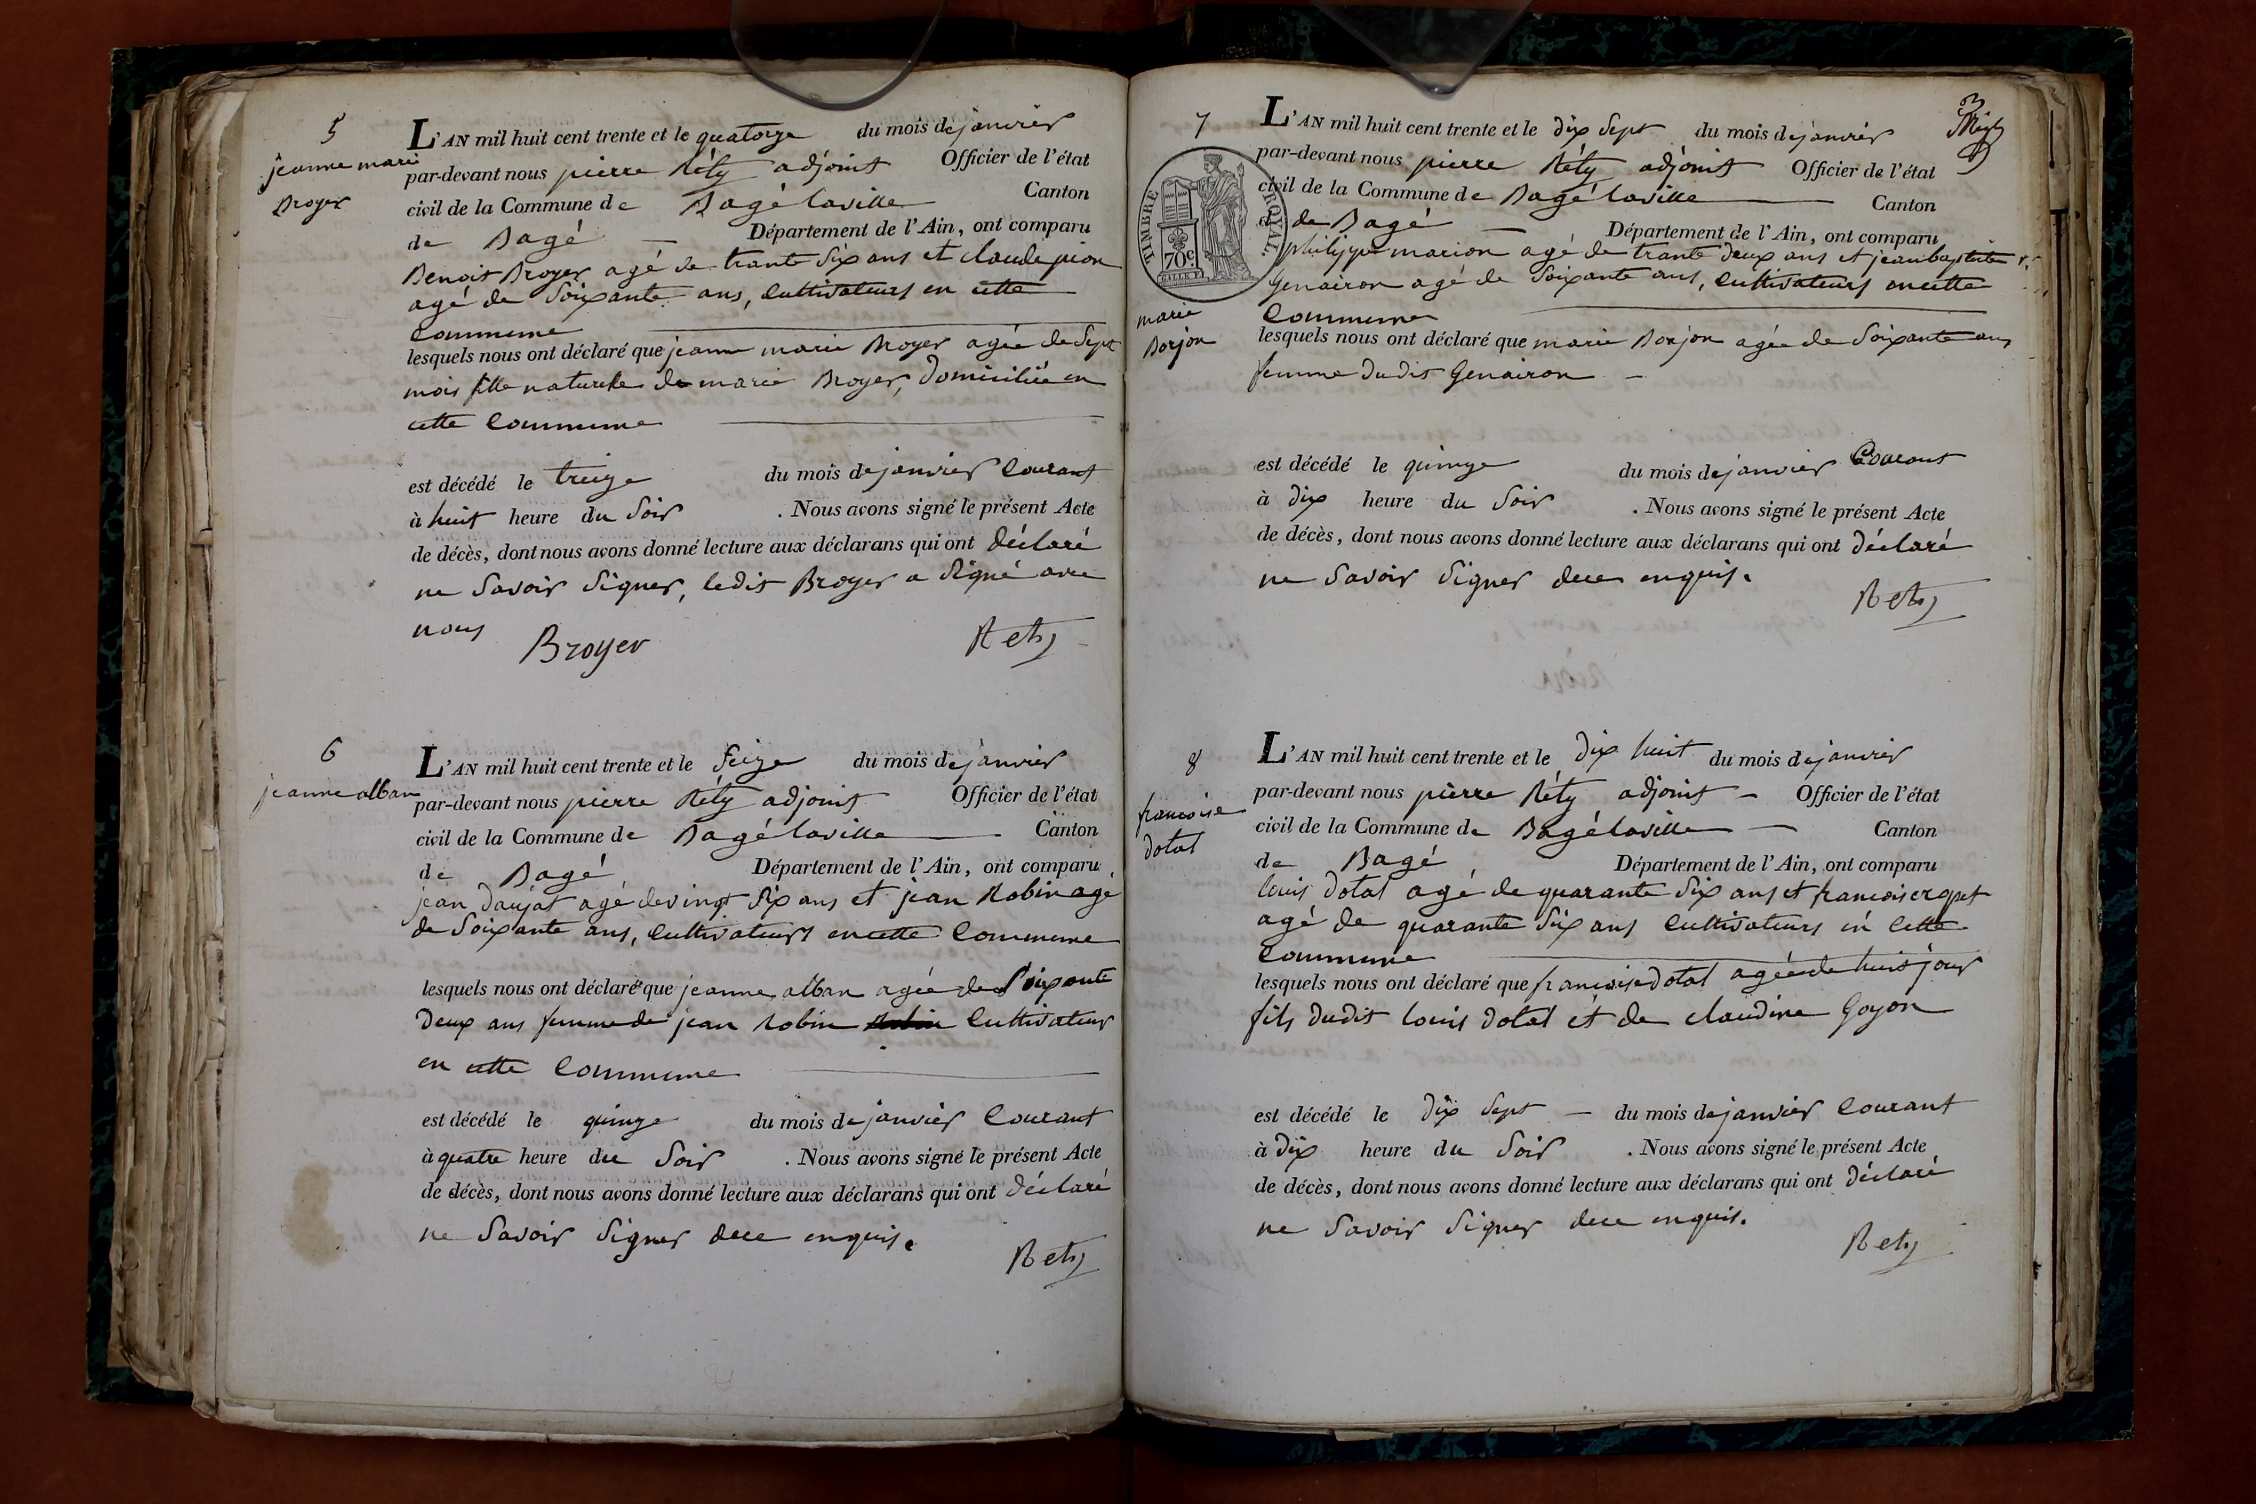 5
jeanne marie
Broyer
L'AN mil huit cent trente et le quatorze du mois de janvier
par-devant nous pierre Réty adjoint Officier de l'état
civil de la Commune de Bagé laville Canton
de Bagé — Département de l'Ain, ont comparu
Benoit Broyer agé de trante Six ans et claude pion
agé de Soixante ans, Cultivateurs en cette
Commune
lesquels nous ont déclaré que jeanne marie Broyer agée de Sept
mois fille naturelle de marie Broyer, Domiciliée en
cette Commune
est décédé le treize du mois de janvier Courant
à huit heure du Soir . Nous avons signé le présent Acte
de décès, dont nous avons donné lecture aux déclarans qui ont déclaré
ne Savoir Signer, ledit Broyer a Signé avec
nous
Broyer Rety
6
jeanne alban
L'AN mil huit cent trente et le Seize du mois de janvier
par-devant nous pierre Réty adjoint Officier de l'état
civil de la Commune de Bagé laville Canton
de Bagé Département de l'Ain, ont comparu
jean Daujat agé de vingt Six ans et jean Robin agé
de Soixante ans, Cultivateurs en cette Commune
lesquels nous ont déclaré que jeanne alban agée de Soixante
Deux ans femme de jean Robin Robin Cultivateur
en cette Commune
est décédé le quinze du mois de janvier Courant
à quatre heure du Soir . Nous avons signé le présent Acte
de décès, dont nous avons donné lecture aux déclarans qui ont déclaré
ne Savoir Signer de ce enquis.
Rety
3
7
TIMBRE ROYAL
70c.
marie
Borjon
L'AN mil huit cent trente et le Dix Sept du mois de janvier
par-devant nous pierre Réty adjoint Officier de l'état
civil de la Commune de Bagé laville Canton
de Bagé — Département de l'Ain, ont comparu
philippe marion agé de trante Deux ans et jean baptiste
Genairon agé de Soixante ans, Cultivateurs en cette
Commune
lesquels nous ont déclaré que marie Borjon agée de Soixante ans
femme dudit Genairon —
est décédé le quinze du mois de janvier Courant
à Dix heure du Soir . Nous avons signé le présent Acte
de décès, dont nous avons donné lecture aux déclarans qui ont Déclaré
ne Savoir Signer de ce enquis.
Rety
8
francoise
Dotal
L'AN mil huit cent trente et le Dix huit du mois de janvier
par-devant nous pierre Réty adjoint — Officier de l'état
civil de la Commune de Bagé laville — Canton
de Bagé Département de l'Ain, ont comparu
louis Dotal agé de quarante Six ans et francois
agé de quarante Six ans Cultivateurs en Cette
Commune
lesquels nous ont déclaré que francoise Dotal agée de huit jour
fils dudit louis Dotal et de claudine Goyon
est décédé le Dix Sept — du mois de janvier Courant
à Dix heure du Soir . Nous avons signé le présent Acte
de décès, dont nous avons donné lecture aux déclarans qui ont Déclaré
ne Savoir Signer de ce enquis.
Rety